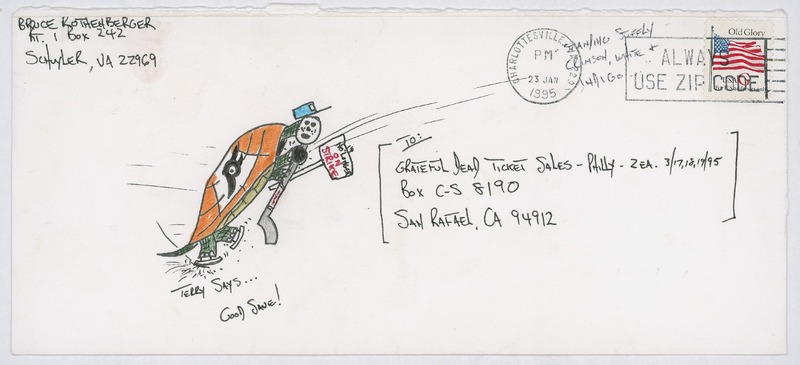 BRUCE ROTHENBERGER
RT. 1 BOX 242
SCHUYLER, VA 22969
CHARLOTTESVILLE, VA
PM
23 JAN
1995
STANDING STEELY
CRIMSON, WHITE &
INDIGO
ALWAYS
USE ZIP CODE
Old Glory
TO:
GRATEFUL DEAD TICKET SALES - PHILLY - 2EA. 3/17,18,19/95
BOX C-S 8190
SAN RAFAEL, CA 94912
ON
STRIKE
TERRY SAYS...
GOOD SAVE!